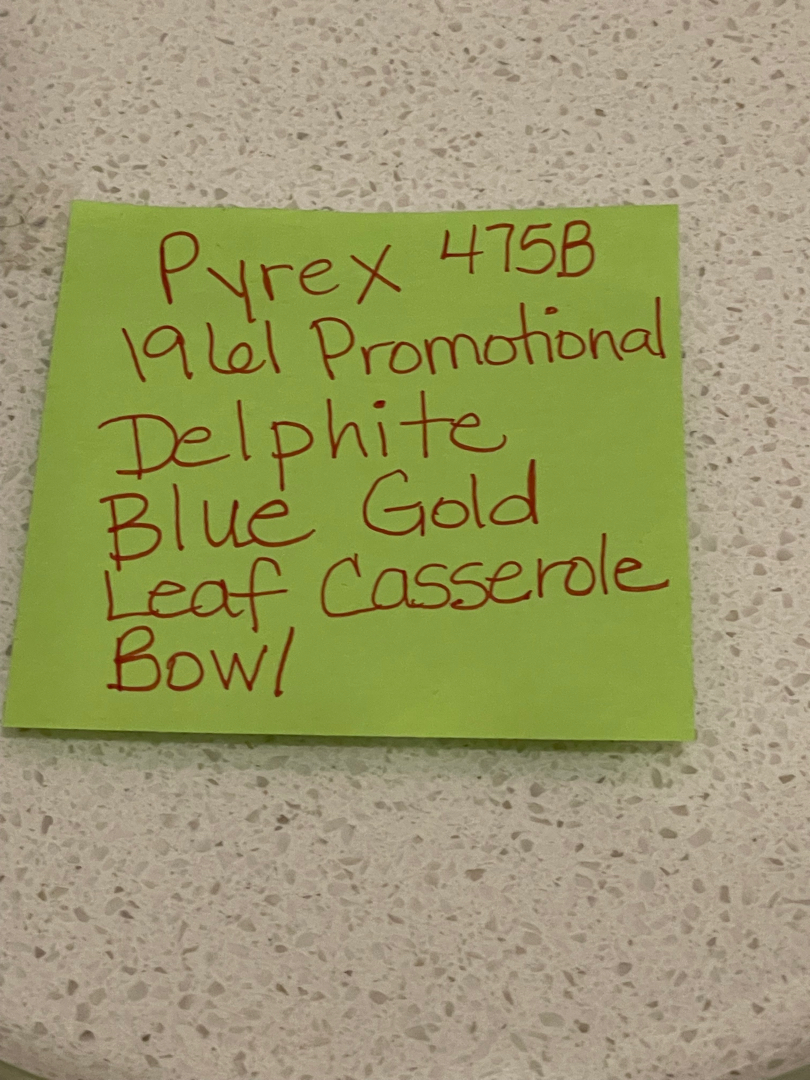 Pyrex 475B
1961 Promotional
Delphite
Blue Gold
Leaf Casserole
Bowl